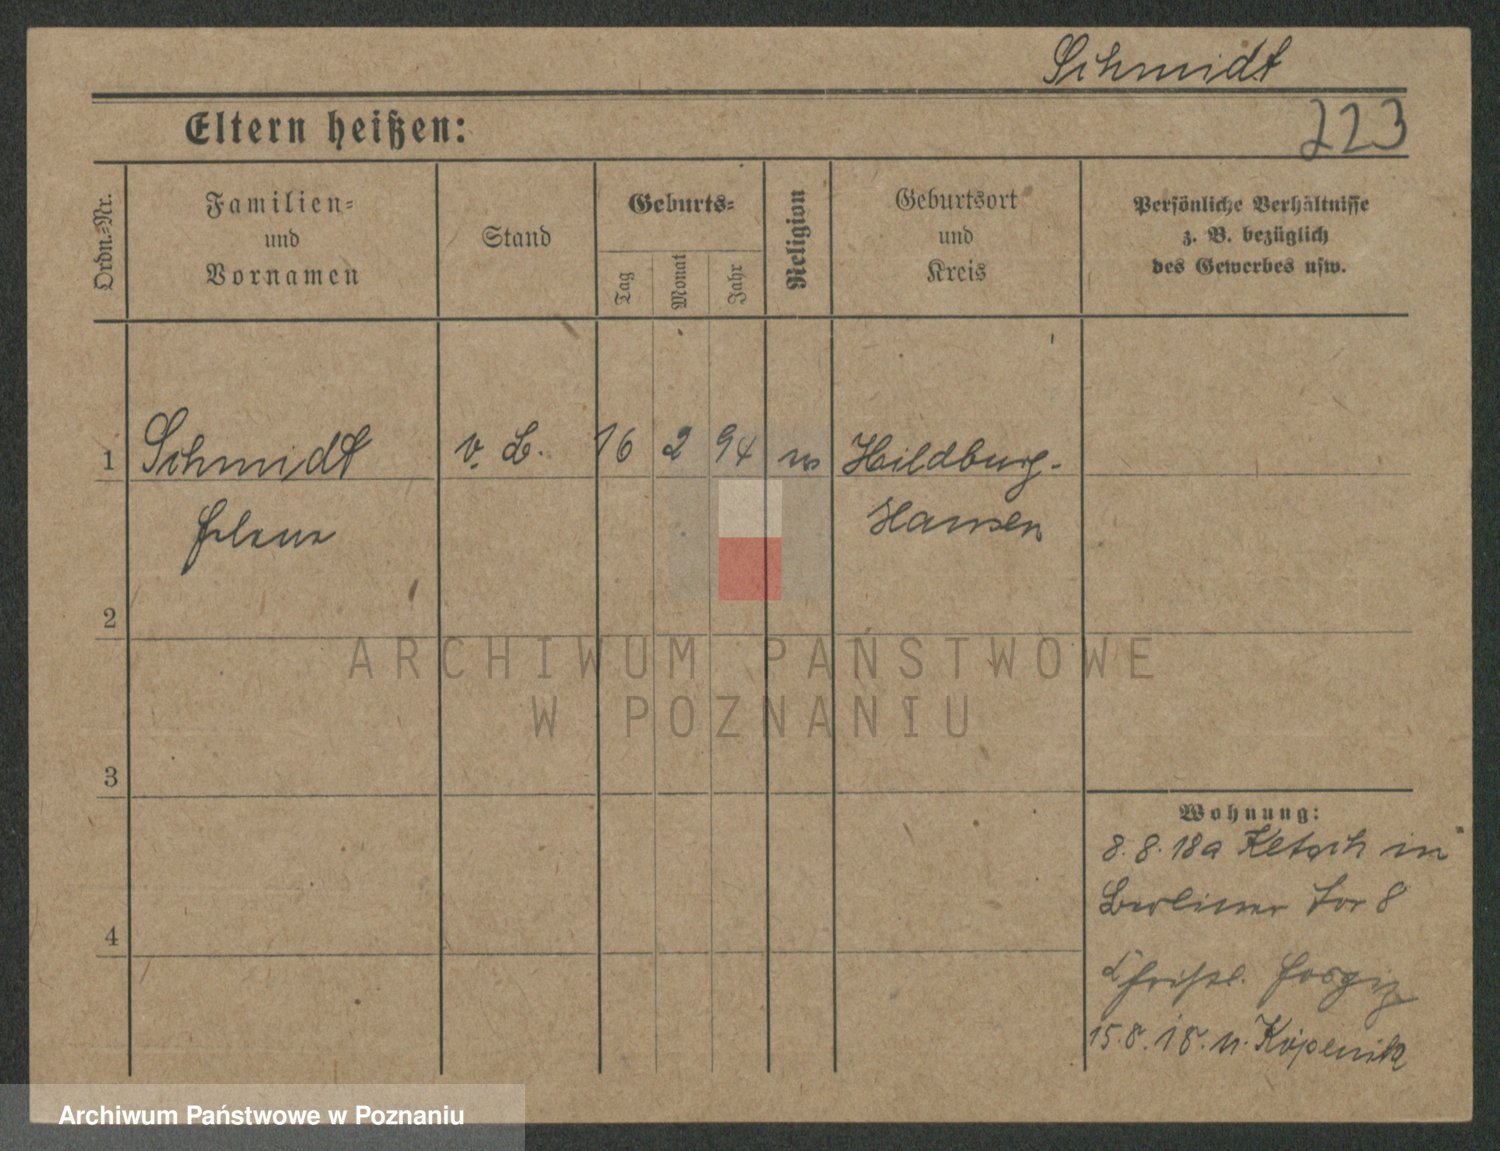 Schmidt
Eltern heißen:
223
Ordn.-Nr.
Familien-
und
Vornamen
Stand
Geburts-
Tag
Monat
Jahr
Religion
Geburtsort
und
Kreis
Persönliche Verhältnisse
z. B. bezüglich
des Gewerbes usw.
1 Schmidt v. B. 16 2 94 Hildburg-
Hausen
2
3
4
Wohnung:
8. 8. 18 a in
Berliner Tor 8
Christl. Hospiz
15. 8. 18. n. Köpenik
ARCHIWUM PAŃSTWOWE
W POZNANIU
Archiwum Państwowe w Poznaniu